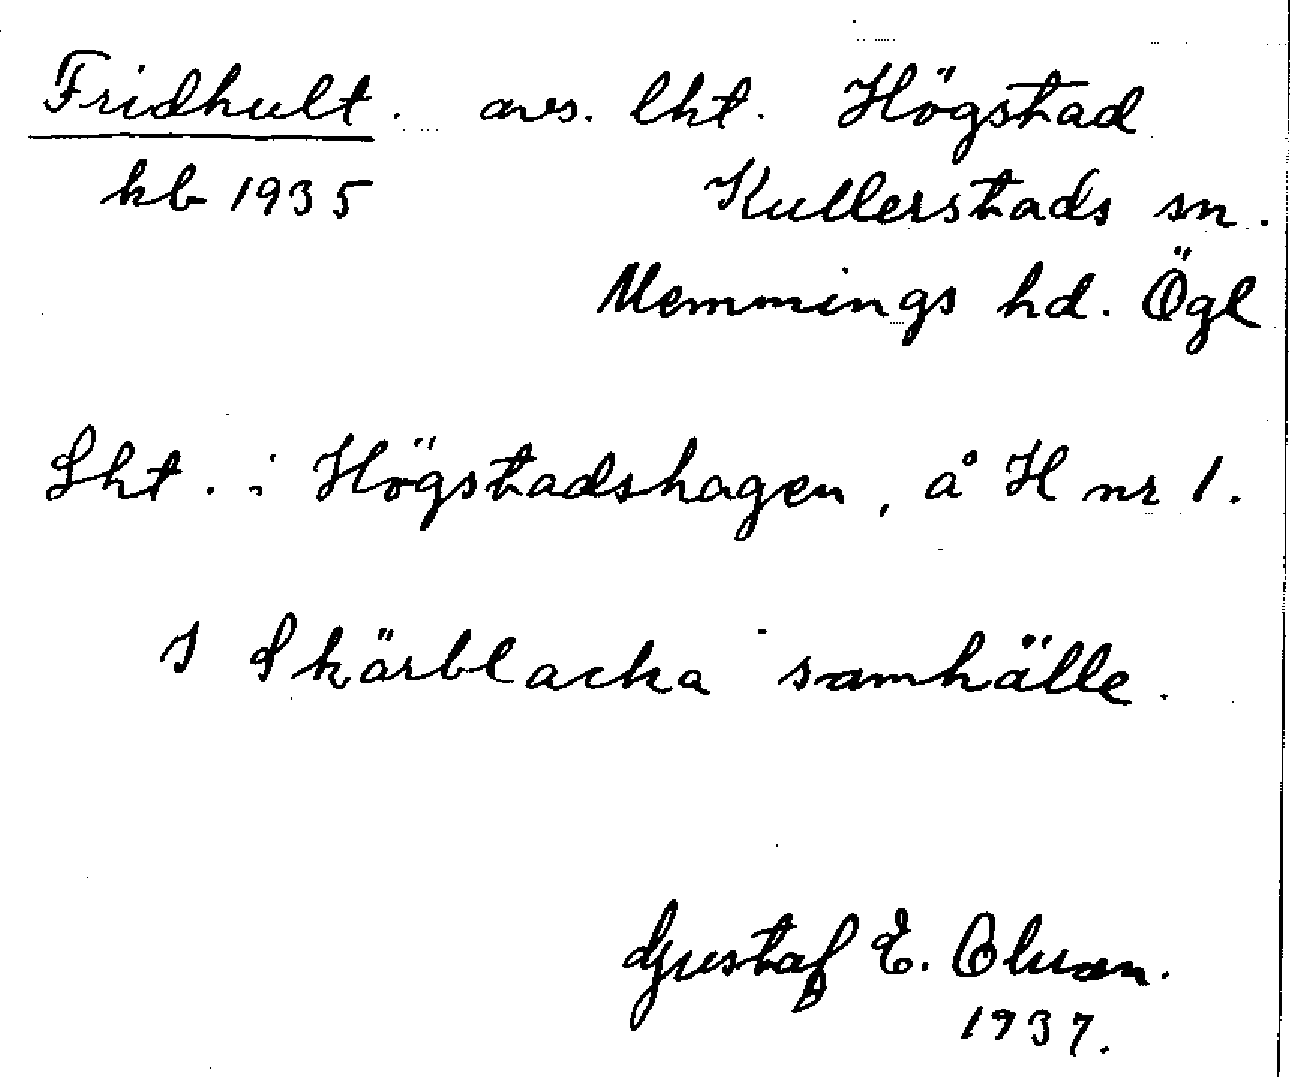 Fridhult. avs. lht. Högstad
kb 1935 Kullerstads sn.
Memmings hd. Ögl
Lht. i Högstadshagen, å H nr 1.
S Skärblacka samhälle.
Gustaf E. Olsson.
1937.